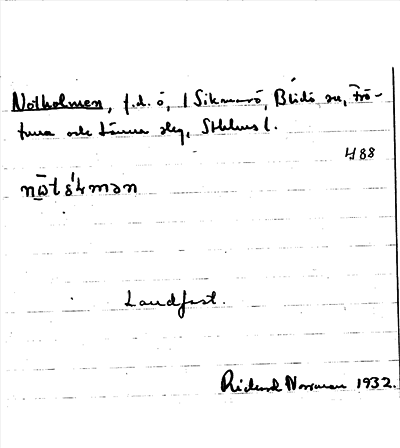 Notholmen, f.d. ö, / Sikmarö, Blidö sn, Frö-
tuna och Länna slg, Sthlms l.
488
Landfast.
Rickard Norrman 1932.